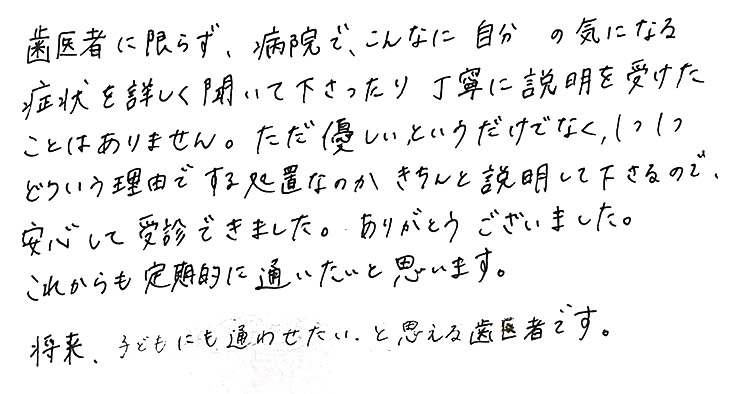 歯医者に限らず、病院で、こんなに 自分 の気になる
症状を詳しく聞いて下さったり 丁寧に説明を受けた
ことはありません。ただ優しい、というだけでなく、1つ1つ
どういう理由で する処置なのか きちんと説明して下さるので、
安心して受診できました。ありがとう ございました。
これからも定期的に通いたいと思います。
将来、子どもにも通わせたい、と思える歯医者です。